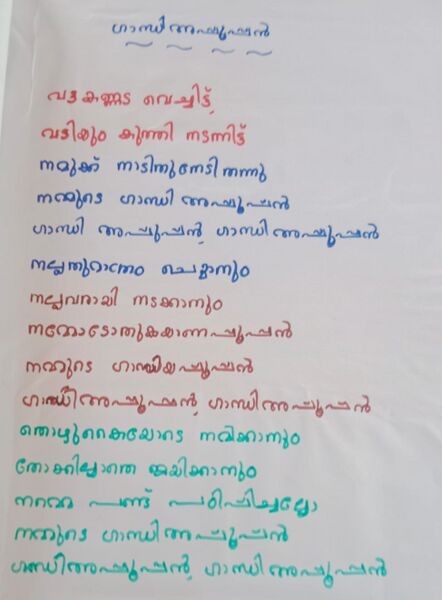 ഗാന്ധി അപ്പൂപ്പൻ
വട്ട കണ്ണട വെച്ചിട്ട്,
വടിയും കുത്തി നടന്നിട്ട്
നമുക്ക് നാടിതു നേടി തന്നു
നമ്മുടെ ഗാന്ധി അപ്പൂപ്പൻ
ഗാന്ധി അപ്പൂപ്പൻ, ഗാന്ധി അപ്പൂപ്പൻ
നല്ലതുമാത്രം ചെയ്യാനും
നല്ലവരായി നടക്കാനും
നമ്മോടോതുകയാണപ്പൂപ്പൻ
നമ്മുടെ ഗാന്ധിയപ്പൂപ്പൻ
ഗാന്ധിഅപ്പൂപ്പൻ, ഗാന്ധി അപ്പൂപ്പൻ
തൊഴുകൈയോടെ നമിക്കാനും
തോക്കില്ലാതെ ജയിക്കാനും
നമ്മെ പണ്ട് പഠിപ്പിച്ചല്ലോ
നമ്മുടെ ഗാന്ധി അപ്പൂപ്പൻ
ഗാന്ധിഅപ്പൂപ്പൻ, ഗാന്ധി അപ്പൂപ്പൻ